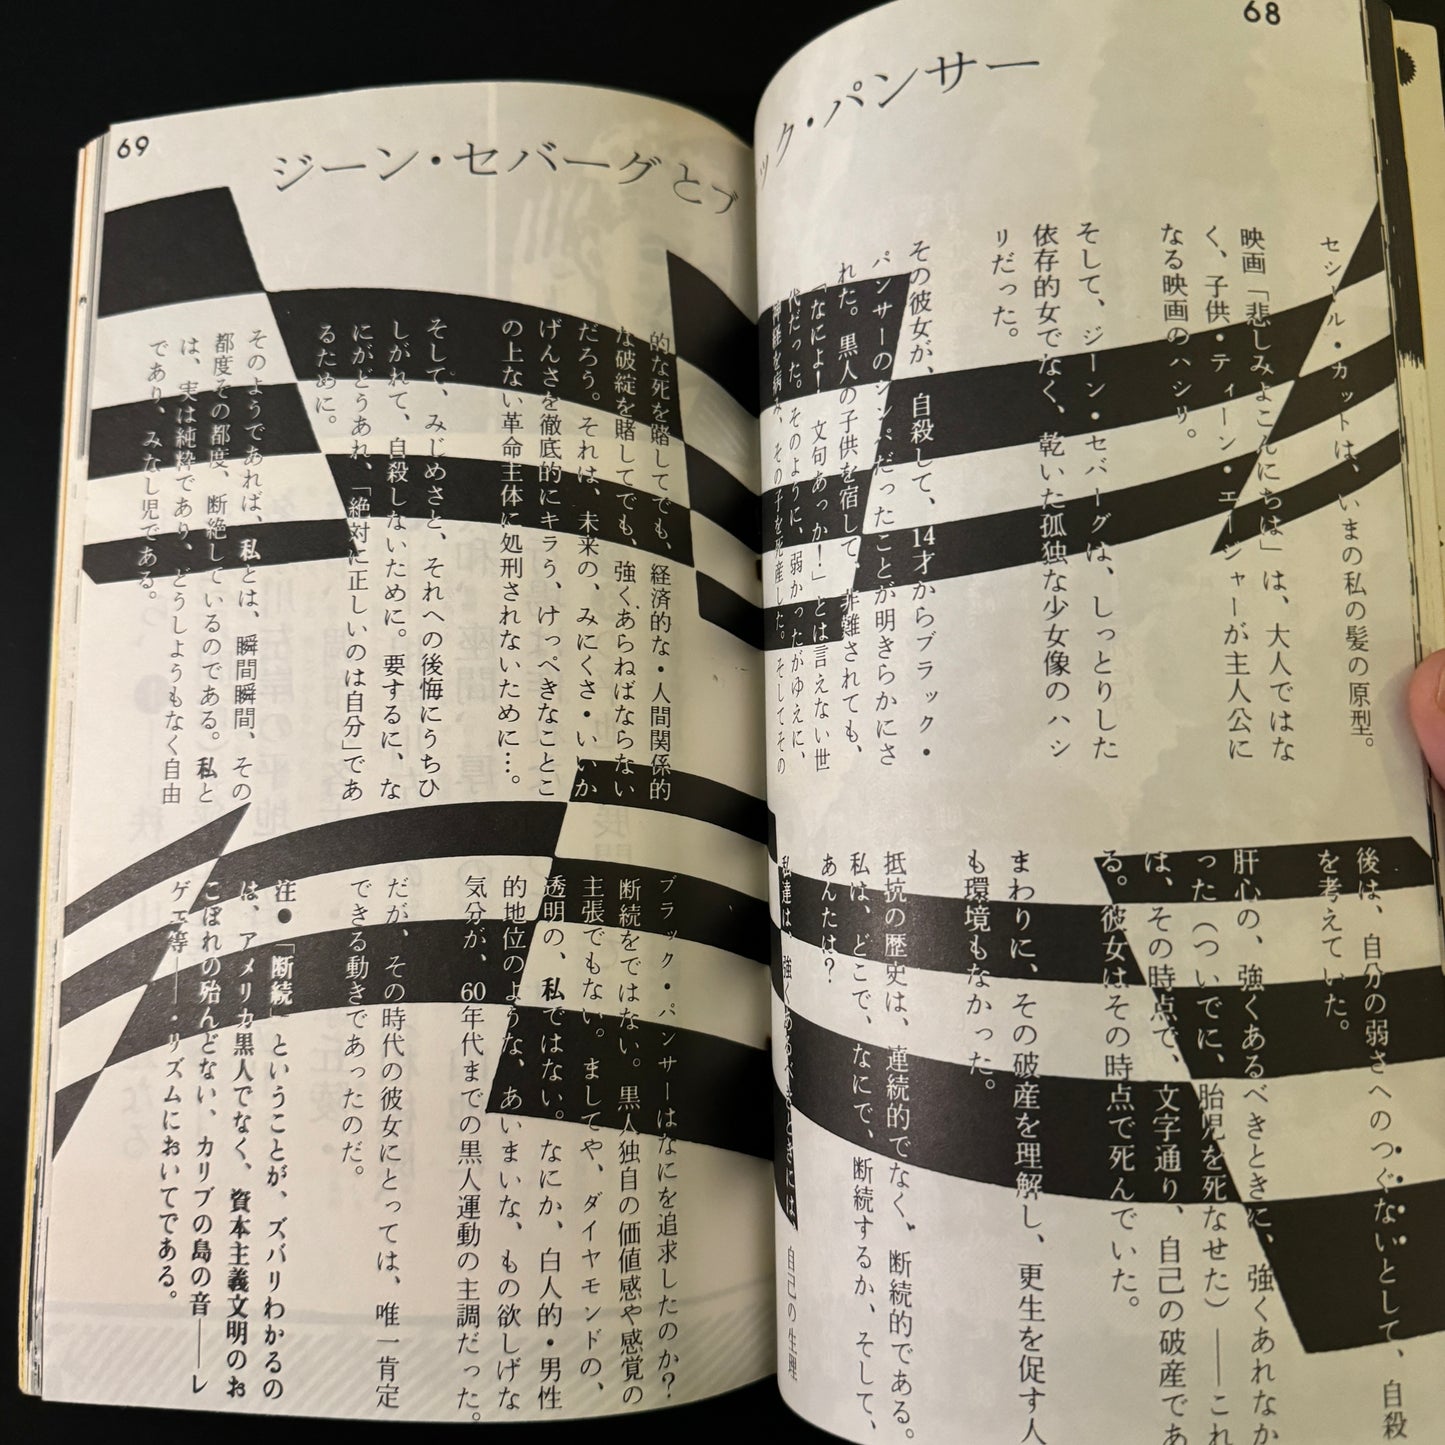 68
69
ジーン・セバーグとブ
ック・パンサー
セシール・カットは、いまの私の髪の原型。
映画「悲しみよこんにちは」は、大人ではな
く、子供・ティーン・エージャーが主人公に
なる映画のハシリ。
そして、ジーン・セバーグは、しっとりした
依存的女でなく、乾いた孤独な少女像のハシ
リだった。
その彼女が、自殺して、14才からブラック・
パンサーのシンパだったことが明きらかにさ
れた。黒人の子供を宿して、非難されても、
「なによ！文句あっか！」とは言えない世
代だった。そのように、弱かったがゆえに、
神経を病み、その子を死産した。そしてその
後は、自分の弱さへのつぐないとして、自殺
を考えていた。
肝心の、強くあるべきときに、強くあれなか
った（ついでに、胎児を死なせた）――これ
は、その時点で、文字通り、自己の破産であ
る。彼女はその時点で死んでいた。
まわりに、その破産を理解し、更生を促す人
も環境もなかった。
抵抗の歴史は、連続的でなく、断続的である。
私は、どこで、なにで、断続するか、そして、
あんたは？
私達は、強くあるべきときには、自己の生理
的な死を賭してでも、経済的な・人間関係的
な破綻を賭してでも、強くあらねばならない
だろう。それは、未来の、みにくさ・いいか
げんさを徹底的にキラう、けっぺきなことこ
の上ない革命主体に処刑されないために…。
そして、みじめさと、それへの後悔にうちひ
しがれて、自殺しないために。要するに、な
にがどうあれ、「絶対に正しいのは自分」であ
るために。
そのようであれば、私とは、瞬間瞬間、その
都度その都度、断絶しているのである。私と
は、実は純粋であり、どうしようもなく自由
であり、みなし児である。
ブラック・パンサーはなにを追求したのか？
断続をではない。黒人独自の価値感や感覚の
主張でもない。ましてや、ダイヤモンドの、
透明の、私ではない。なにか、白人的・男性
的地位のような、あいまいな、もの欲しげな
気分が、60年代までの黒人運動の主調だった。
だが、その時代の彼女にとっては、唯一肯定
できる動きであったのだ。
注●「断続」ということが、ズバリわかるの
は、アメリカ黒人でなく、資本主義文明のお
こぼれの殆んどない、カリブの島の音――レ
ゲエ等――・リズムにおいてである。